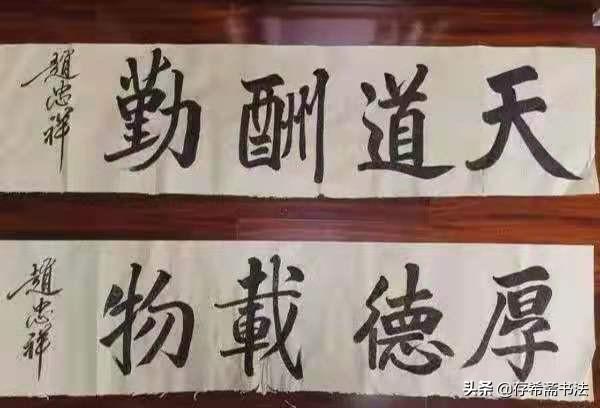 天道酬勤
趙忠祥
厚德載物
趙忠祥
头条 @存希斋书法